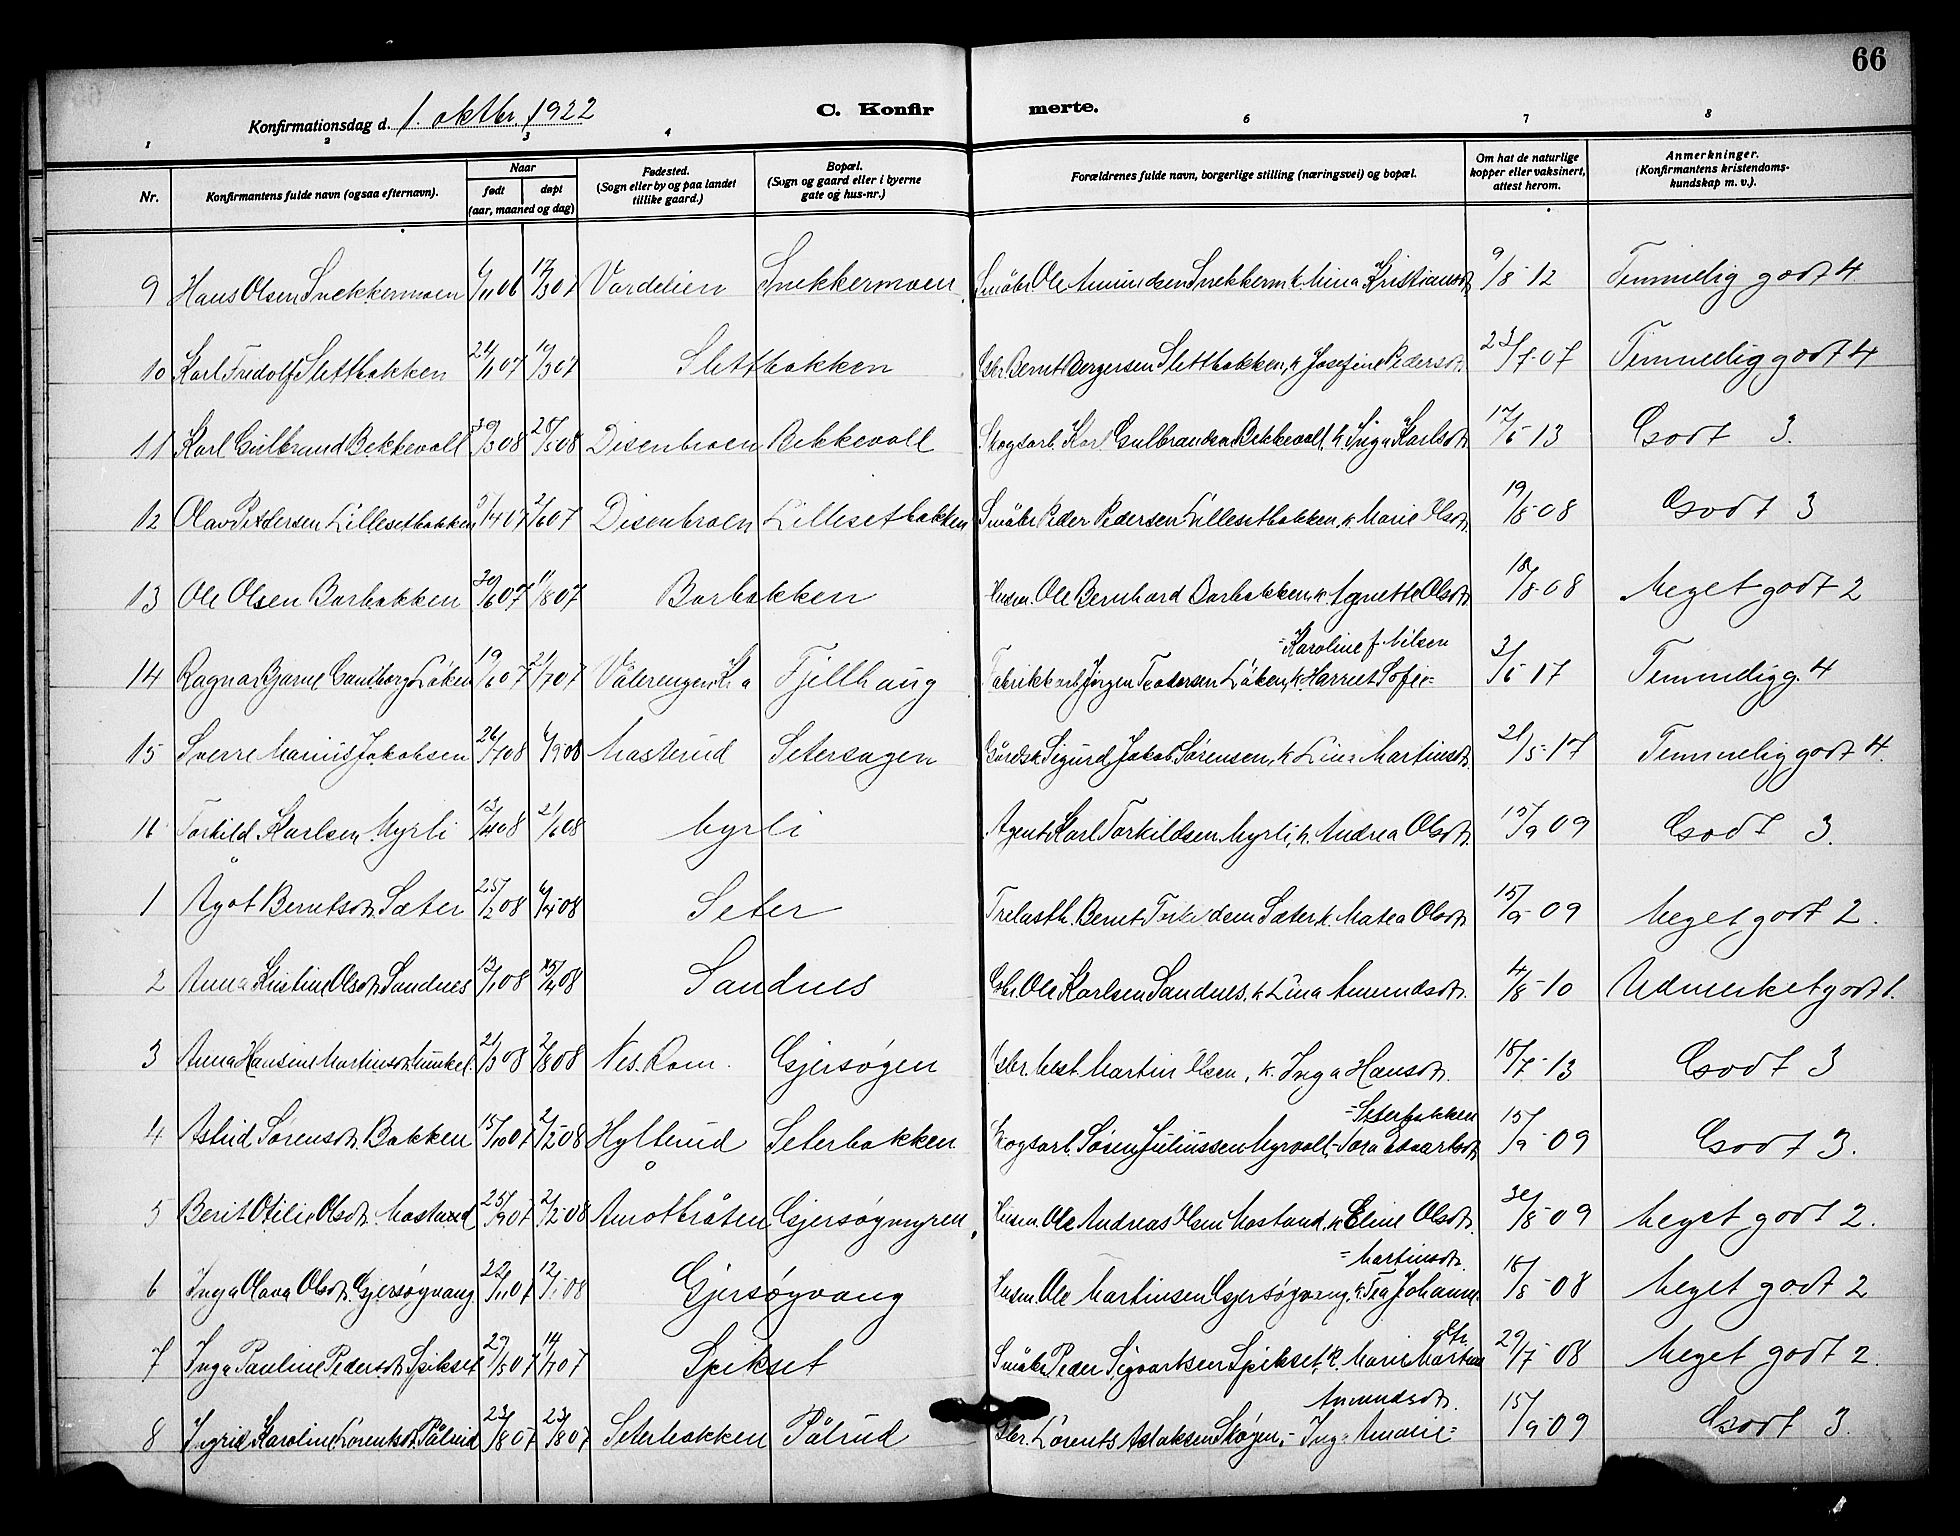 66
Konfirmationsdag d. 1. oktbr. 1922
C. Konfir merte.
1 2 3 4 6 7 8
Nr. Konfirmantens fulde navn (ogsaa efternavn). Naar født døpt (aar, maaned og dag) Fødested. (Sogn eller by og paa landet tillike gaard.) Bopæl. (Sogn og gaard eller i byerne gate og hus-nr.) Forældrenes fulde navn, borgerlige stilling (næringsvei) og bopæl. Om hat de naturlige kopper eller vaksinert, attest herom. Anmerkninger. (Konfirmantens kristendoms-kundskap m. v.).
9 Hans Olsen Snekkermoen 6/11 06 17/3 07 Vardelien Snekkermoen Småbr. Ole Amundsen Snekkerm. k. Mina Kristiansdt. 9/8-12 Temmelig godt 4.
10 Karl Fredolf Slettbakken 24/1 07 17/3 07 Slettbakken Gbr. Bernt Bergersen Slettbakken, k. Josefine Pedersdt. 23/7-07 Temmelig godt 4
11 Karl Gulbrand Bekkevoll 30/3 08 28/5 08 Disenbroen Bekkevoll Skogsarb. Karl Gulbrandsen Bekkevoll, k. Inga Karlsdt. 17/6 13 Godt 3.
12 Olav Pedersen Lillesetbakken 3/4 07 2/6 07 Disenbroen Lillesetbakken Småbr. Peder Pedersen Lillesetbakken, k. Marie Olsdt. 19/8-08 Godt 3
13 Ole Olsen Borbakken 30/6 07 11/8 07 Borbakken Husm. Ole Bernhard Borbakken, k. Agnette Olsdt. 18/8-08 Meget godt 2
14 Ragnar Bjarne Løken 19/6 07 21/7 07 Vålerengen Kr.a Fjellhaug Fabrikkarb. Jørgen Teodorsen Løken, k. Harriet Sofie = = Karoline f. Nilsen 3/6 17 Temmelig g. 4
15 Sverre Marius Jakobsen 26/7 08 6/9 08 Masterud Setersagen Gårdsk. Sigurd Jakob Sørensen, k. Lina Martinsdt. 21/5-17 Temmelig godt 4.
16 Torkild Karlsen Myrli 13/4 08 21/6 08 Myrli Agent Karl Torkildsen Myrli, k. Andrea Olsdt. 15/9 09 Godt 3.
1 Ågot Berntsdt. Sæter 25/2 08 6/4 08 Seter Trelasth. Bernt Sæter k. Matea Olsdt. 15/9-09 Meget godt 2.
2 Anna Kristine Olsdt. Sandnes 13/1 08 Sandnes Gbr. Ole Karlsen Sandnes, k. Lina Amundsdt. 4/8-10 Udmerket godt 1.
3 Anna Hansine Martinsdt. 21/3 08 2/8 08 Nes. Rom. Gjersøgen Gbr. best. Martin Olsen, k. Inga Hansdt. 18/7-13 Godt 3
4 Astrid Sørensdt. Bakken 15/10 07 2/2 08 Hyllerud Seterbakken Skogsarb. Søren Juliussen Myrvoll, - Tora Edvartsdt. = Seterbakken 15/9-09 Godt 3.
5 Berit Otilie Olsdt. Mostand 25/9 07 2/2-08 Åmotbråten Gjersøgmyren, Husm. Ole Andreas Olsen Mostand, k. Eline Olsdt. 30/8-09 Meget godt 2.
6 Inga Olava Olsdt. Gjersøgvang 22/11 07 12/1-08 Gjersøgvang Husm. Ole Martinsen Gjersøgvang, k. Tea Johanne = Martinsdt. 18/8-08 Meget godt 2
7 Inga Pauline Pedersdt. Spikset 29/5 07 14/7 07 Spikset Småbr. Peder Sigvartsen Spikset, k. Marie Martins dtr. 29/7-08 Meget godt 2
8 Ingrid Karoline Lorentsdt. Pålrud 23/8 07 Seterbakken Pålrud Gbr. Lorents Aslaksen Skøgen, - Inga Amalie = Amundsdt. 15/9-09 Godt 3.